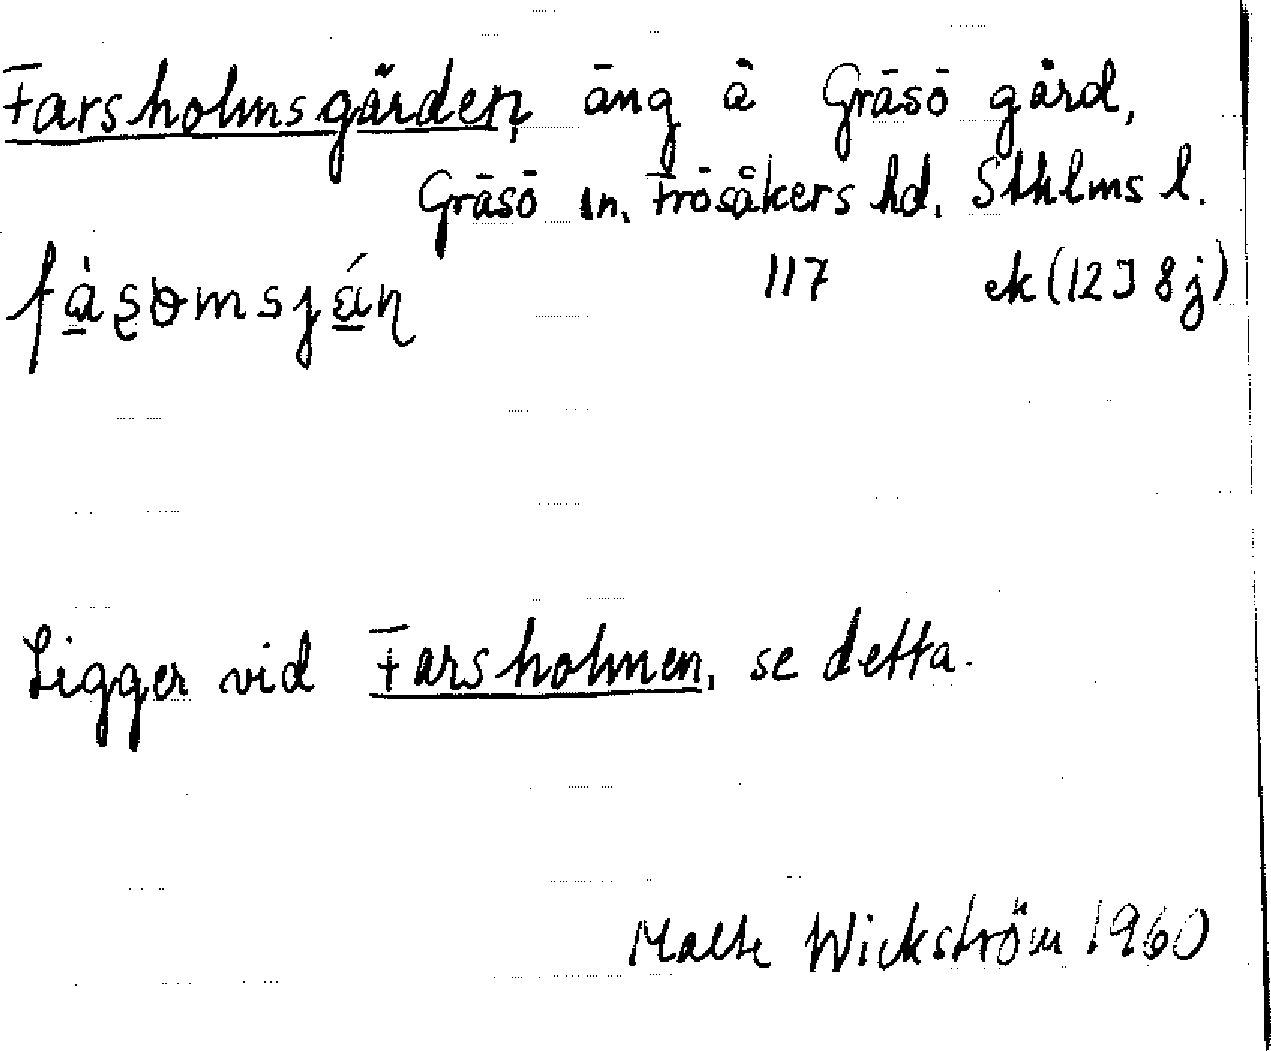 Farsholmsgärden, äng å Gräsö gård,
Gräsö sn, Frösåkers hd, Sthlms l.
117 ek (12 I 8 j)
Ligger vid Farsholmen, se detta.
Malte Wickström 1960